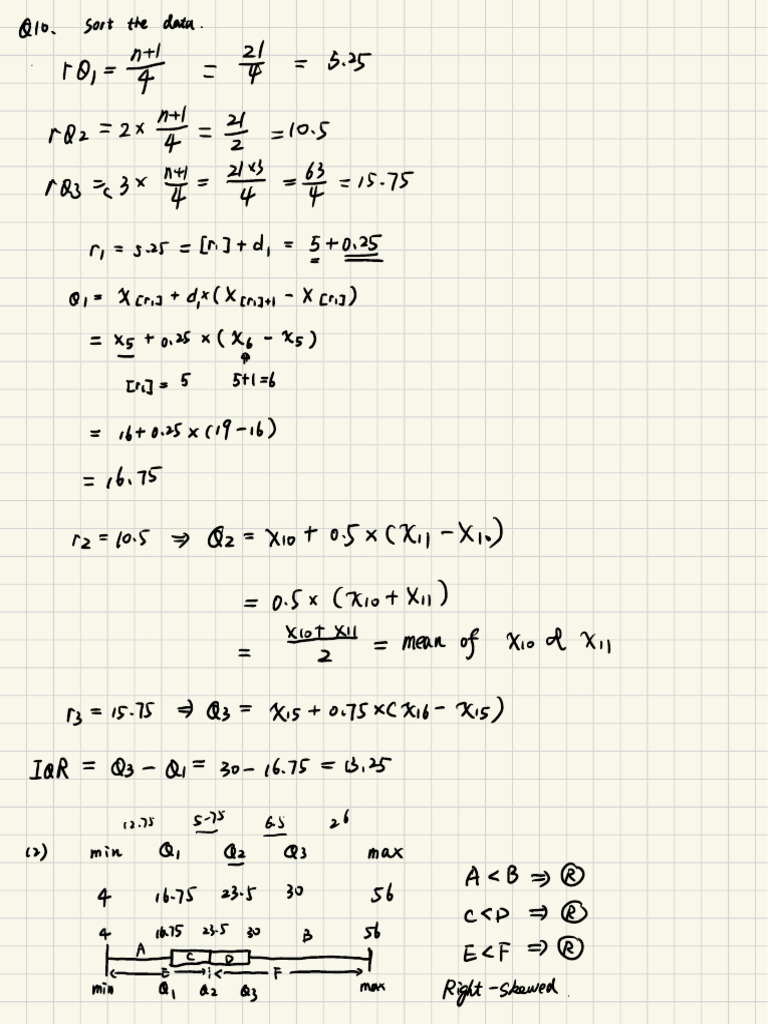 Q10. Sort the data.
rQ1 = n+1/4 = 21/4 = 5.25
rQ2 = 2 × n+1/4 = 21/2 = 10.5
rQ3 = 3 × n+1/4 = 21×3/4 = 63/4 = 15.75
r1 = 5.25 = [r1] + d1 = 5 + 0.25
Q1 = x[r1] + d1 × (x[r1]+1 − x[r1])
= x5 + 0.25 × (x6 − x5)
[r1] = 5 5+1=6
= 16 + 0.25 × (19 − 16)
= 16.75
r2 = 10.5 ⇒ Q2 = x10 + 0.5 × (x11 − x10)
= 0.5 × (x10 + x11)
= x10 + x11/2 = mean of x10 & x11
r3 = 15.75 ⇒ Q3 = x15 + 0.75 × (x16 − x15)
IQR = Q3 − Q1 = 30 − 16.75 = 13.25
12.75 5.75 6.5 26
(2) min Q1 Q2 Q3 max
4 16.75 23.5 30 56
4 16.75 23.5 30 B 56
A C D
E F
min Q1 Q2 Q3 max
A < B ⇒ R
C < D ⇒ R
E < F ⇒ R
Right-skewed.